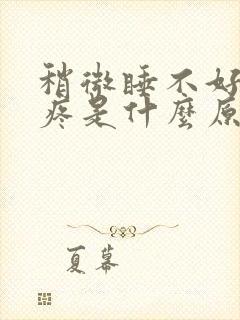 稍微睡不好
疼是什麼原
夏幕